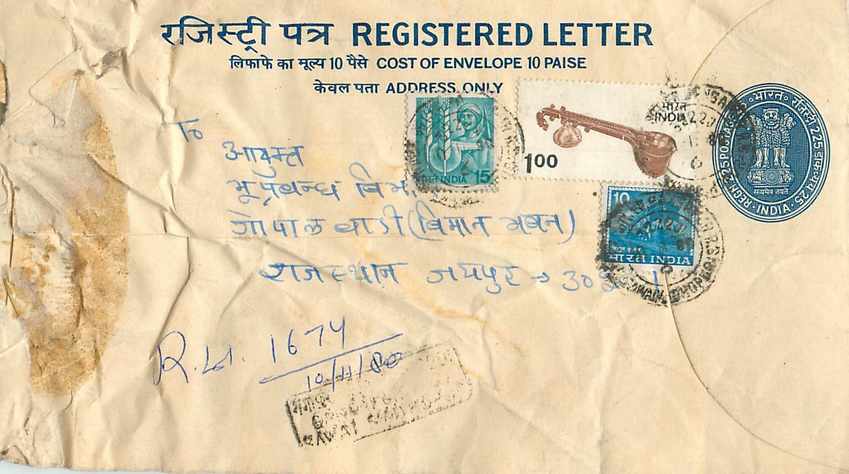 रजिस्ट्री पत्र REGISTERED LETTER
लिफाफे का मूल्य 10 पैसे COST OF ENVELOPE 10 PAISE
केवल पता ADDRESS ONLY
भारत
INDIA
1.00
15
भारत INDIA
10
भारत INDIA
भारत रजिस्ट्री 225
REGN. 225 POSTAGE 25
INDIA
सत्यमेव जयते
To
आयुक्त
भू प्रबन्ध
गोपाल बाडी (विमान भवन)
राजस्थान जयपुर →
1674
10/11/80